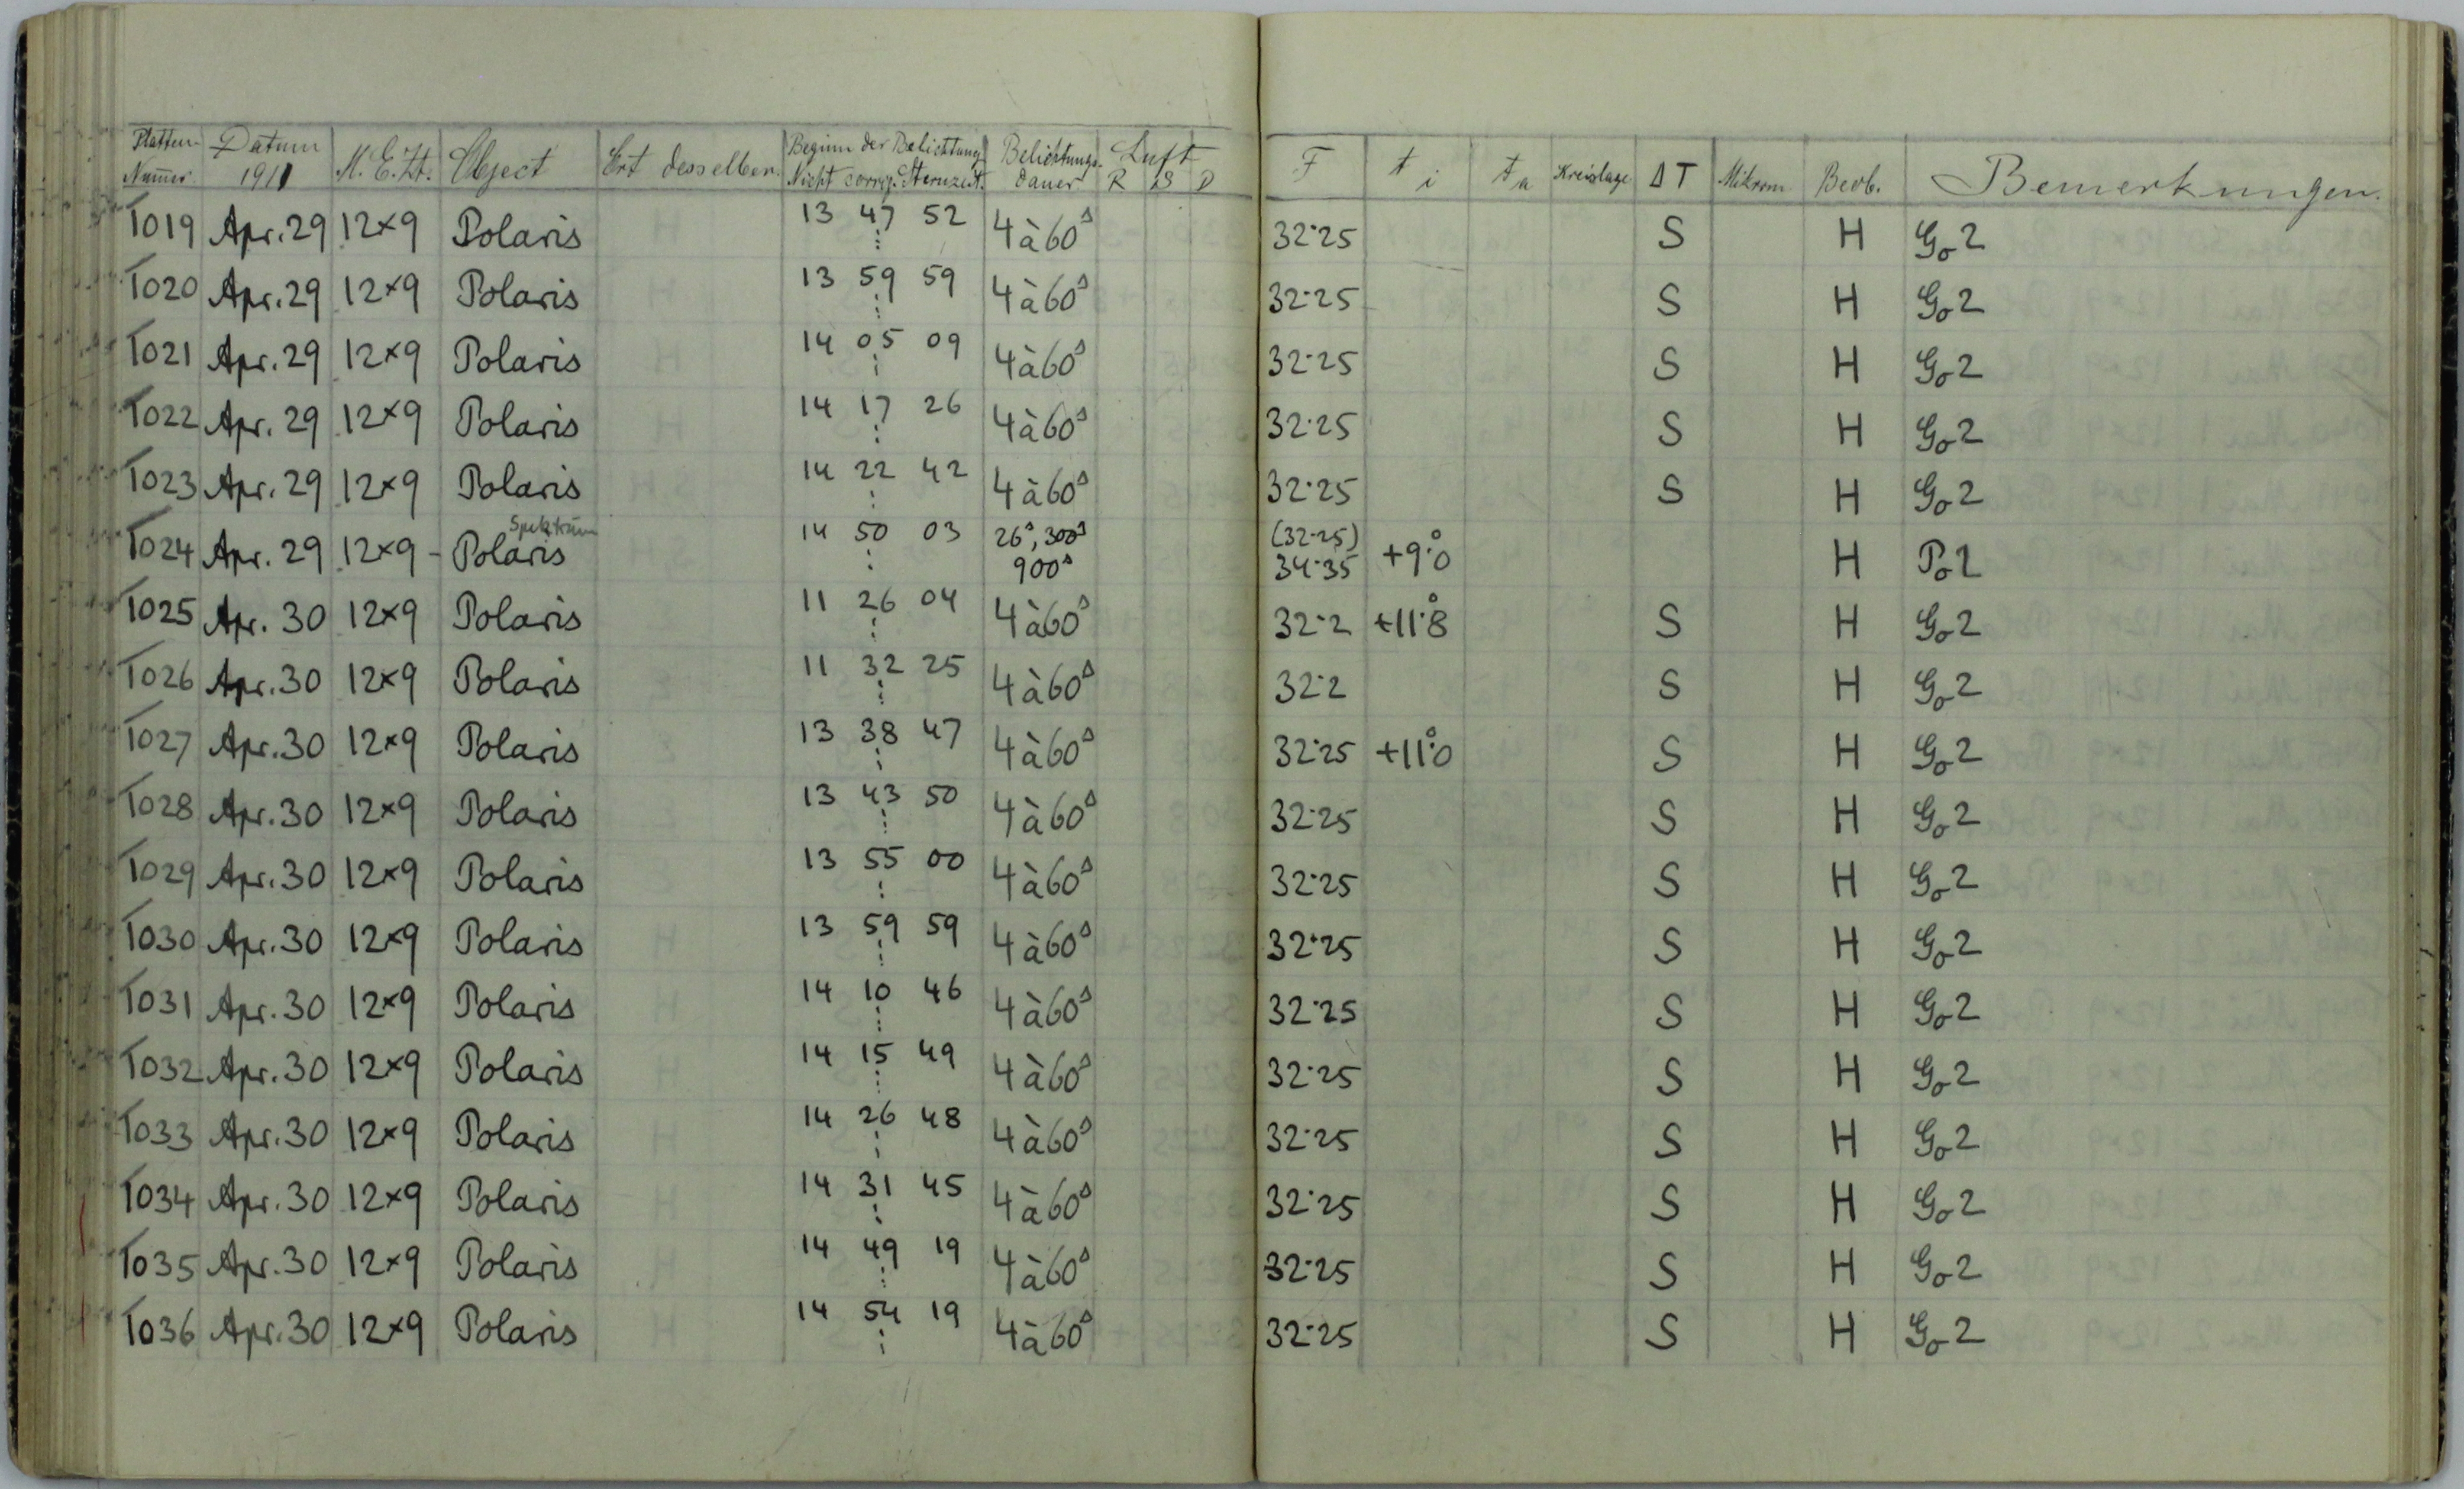 Platten Nummer Datum 1911 M.E.Zt. Object Ort desselben Beginn der Belichtung Nicht corrig. Sternzeit. Belichtungs-dauer Luft R S D F t i t a Kreislage ΔT Mikrom Beob. Bemerkungen.
T019 Apr. 29 12×9 Polaris 13 47 52 4 à 60ˢ 32·25 S H Go 2
T020 Apr. 29 12×9 Polaris 13 59 59 4 à 60ˢ 32·25 S H Go 2
T021 Apr. 29 12×9 Polaris 14 05 09 4 à 60ˢ 32·25 S H Go 2
T022 Apr. 29 12×9 Polaris 14 17 26 4 à 60ˢ 32·25 S H Go 2
T023 Apr. 29 12×9 Polaris 14 22 42 4 à 60ˢ 32·25 S H Go 2
Spektrum
T024 Apr. 29 12×9 - Polaris 14 50 03 26ˢ, 300ˢ 900ˢ (32·25) 34·35 +9°·0 H Po 1
T025 Apr. 30 12×9 Polaris 11 26 04 4 à 60ˢ 32·2 +11°·8 S H Go 2
T026 Apr. 30 12×9 Polaris 11 32 25 4 à 60ˢ 32·2 S H Go 2
T027 Apr. 30 12×9 Polaris 13 38 47 4 à 60ˢ 32·25 +11°·0 S H Go 2
T028 Apr. 30 12×9 Polaris 13 43 50 4 à 60ˢ 32·25 S H Go 2
T029 Apr. 30 12×9 Polaris 13 55 00 4 à 60ˢ 32·25 S H Go 2
T030 Apr. 30 12×9 Polaris 13 59 59 4 à 60ˢ 32·25 S H Go 2
T031 Apr. 30 12×9 Polaris 14 10 46 4 à 60ˢ 32·25 S H Go 2
T032 Apr. 30 12×9 Polaris 14 15 49 4 à 60ˢ 32·25 S H Go 2
T033 Apr. 30 12×9 Polaris 14 26 48 4 à 60ˢ 32·25 S H Go 2
T034 Apr. 30 12×9 Polaris 14 31 45 4 à 60ˢ 32·25 S H Go 2
T035 Apr. 30 12×9 Polaris 14 49 19 4 à 60ˢ 32·25 S H Go 2
T036 Apr. 30 12×9 Polaris 14 54 19 4 à 60ˢ 32·25 S H Go 2